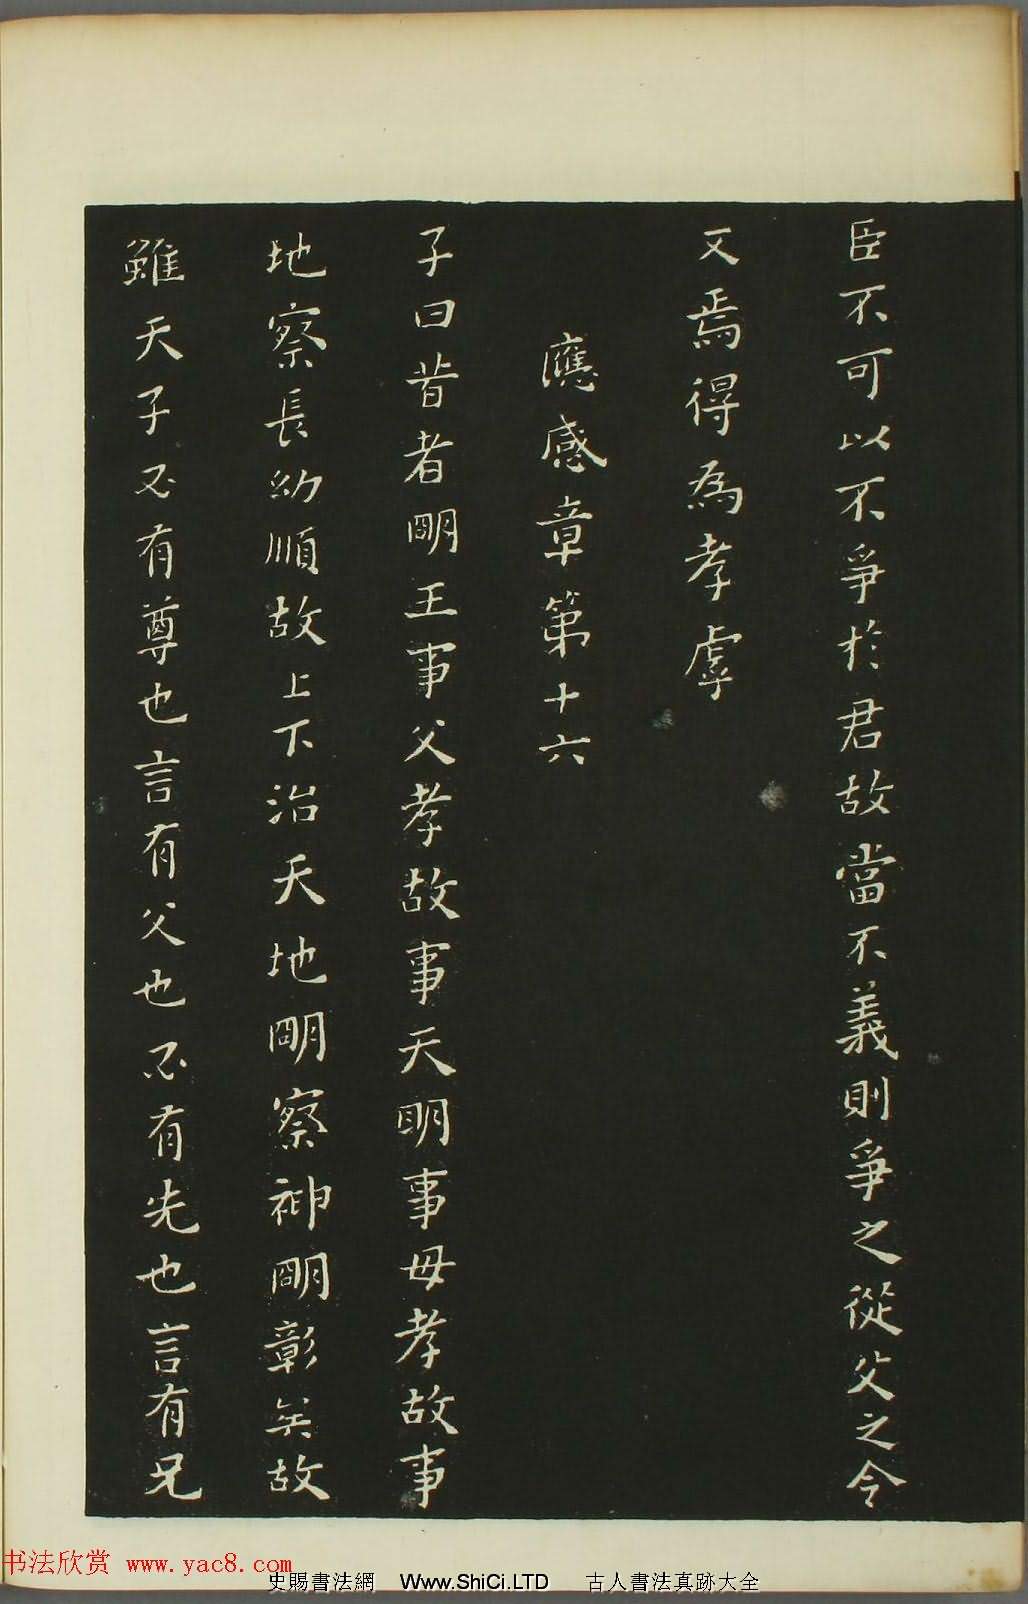 臣不可以不爭於君故當不義則爭之從父之令
又焉得為孝虖
應感章第十六
子曰昔者明王事父孝故事天明事母孝故事
地察長幼順故上下治天地明察神明彰矣故
雖天子必有尊也言有父也必有先也言有兄
书法欣赏 www.yac8.com
史賜書法網 Www.ShiCi.LTD 古人書法真跡大全